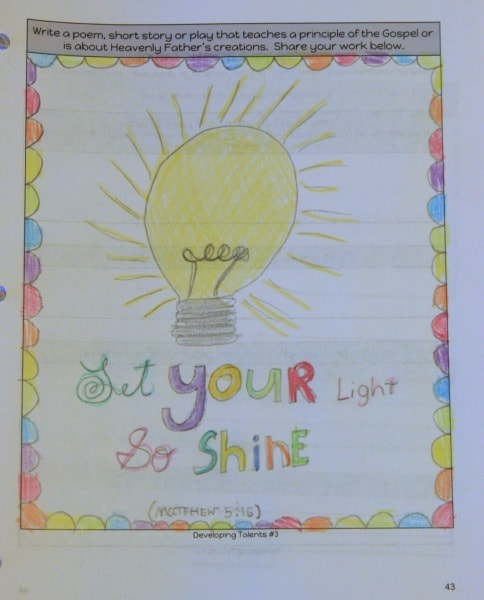 Write a poem, short story or play that teaches a principle of the Gospel or
is about Heavenly Father's creations. Share your work below.
Let YOUR Light
So ShinE
(MATTHEW 5:16)
Developing Talents #3
43